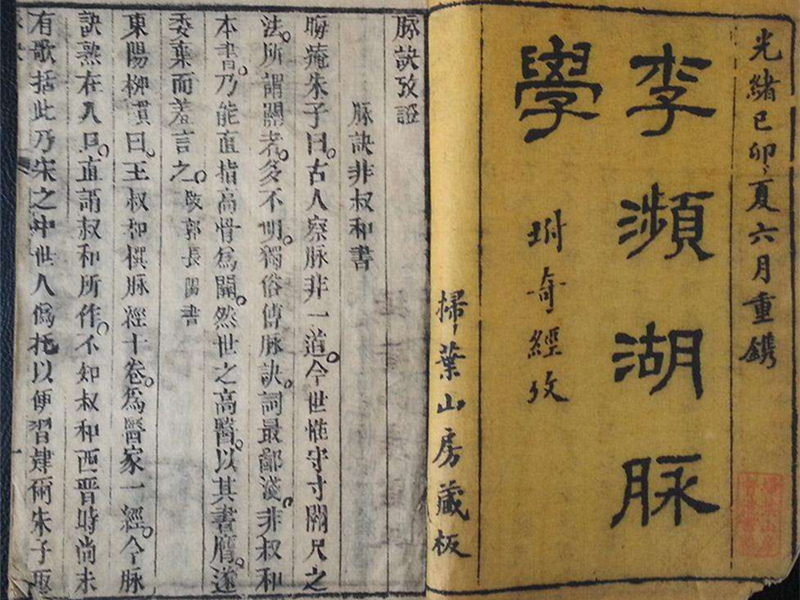 光緒己卯夏六月重鐫
李瀕湖脉
學
坿奇經攷
掃葉山房藏板
脉訣攷證
脉訣非叔和書
晦庵朱子曰古人察脉非一道今世惟守寸關尺之
法所謂關者多不明獨俗傳脉訣詞最鄙淺非叔和
本書乃能直指高骨爲關然世之高醫以其書贋遂
委棄而羞言之跋郭長陽書
東陽柳貫曰王叔和撰脉經十卷爲醫家一經今脉
訣熟在人口直謂叔和所作不知叔和西晋時尚未
有歌括此乃宋之中世人僞托以便習肄爾朱子取